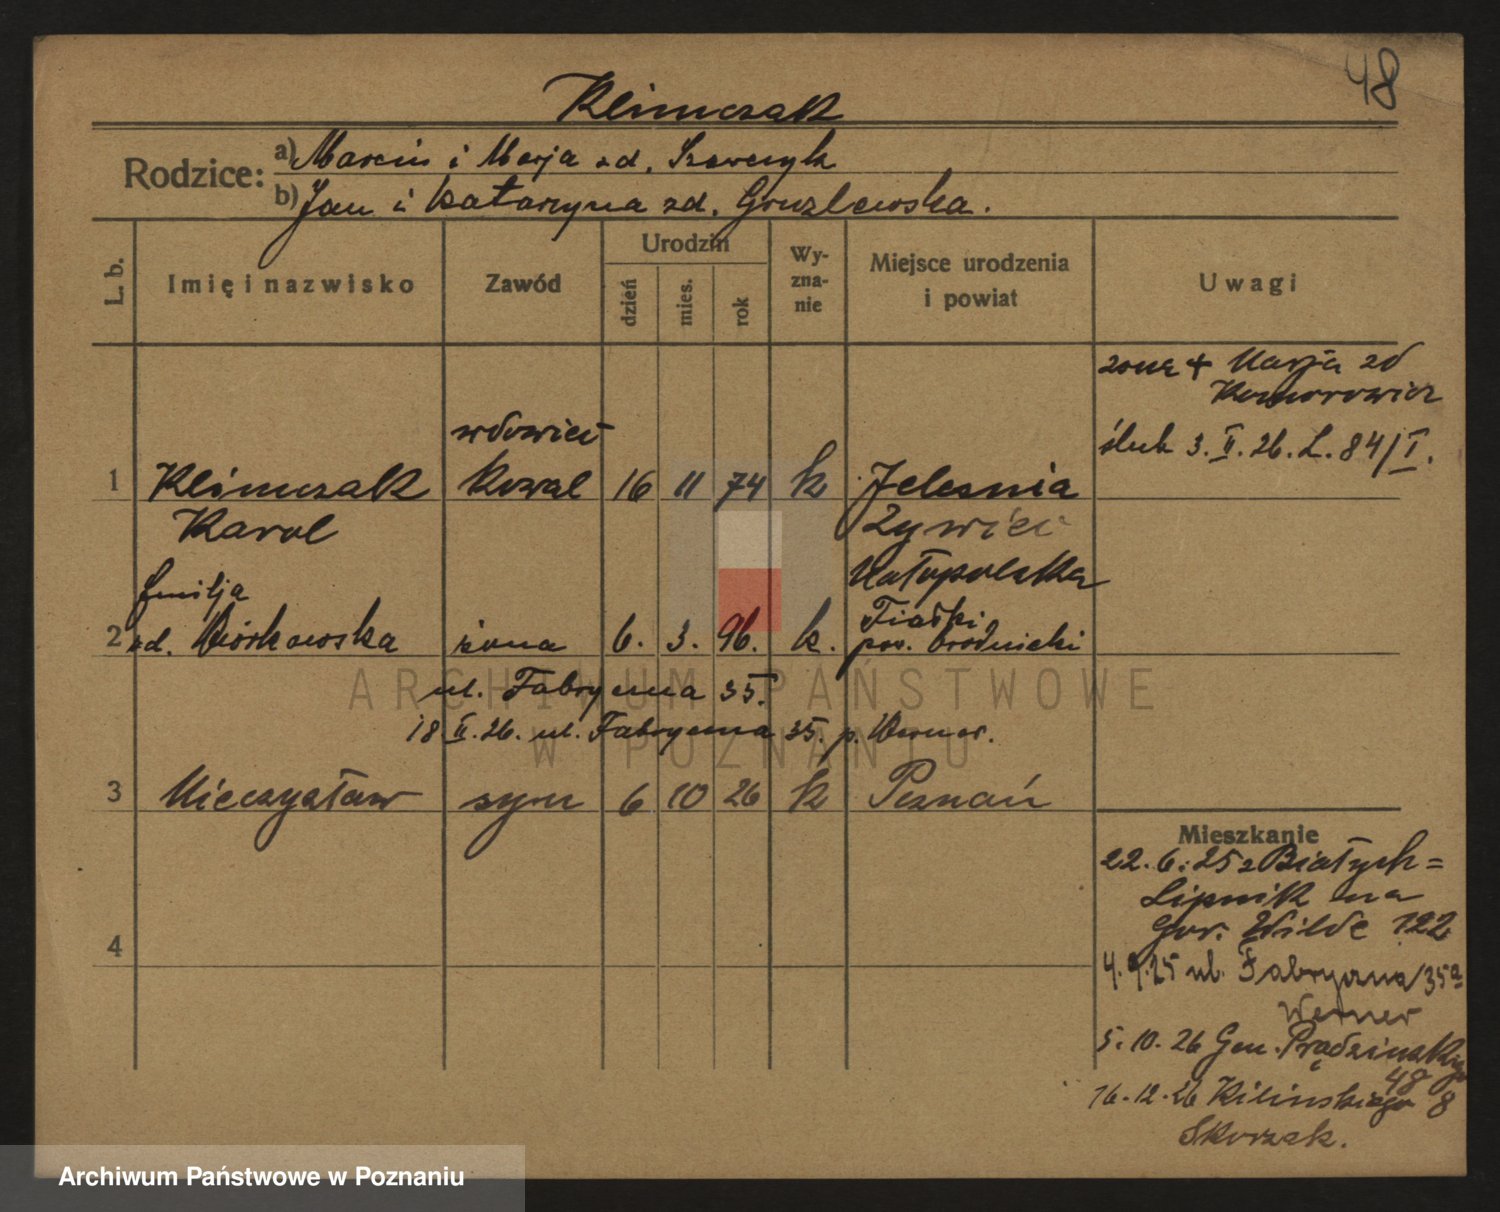 48
Klimczak
Rodzice: a) Marcin i Marja zd. Szewczyk
b) Jan i Katarzyna zd.
L. b.
Imię i nazwisko
Zawód
Urodzin
dzień
mies.
rok
Wy-
zna-
nie
Miejsce urodzenia
i powiat
Uwagi
żona + Marja zd
Komorowicz
ślub 3. II. 26. L. 84/I.
wdowiec
1 Klimczak kowal 16 11 74 k Jelesnia
Karol Żywiec
Małopolska
Emilja
Fiałki
2 zd. żona 6. 3. 96. k. pow. brodnicki
ul. Fabryczna 35.
18 II. 26. ul. Fabryczna 35. p. Werner.
3 Mieczysław syn 6 10 26 k Poznań
4
Mieszkanie
22. 6. 25 z Białych=
Lipnik na
Gór. Wilde 122
4. 9. 25 ul. Fabryczna 35a
Werner
5. 10. 26 Gen. Prądzyńskiego
48
16. 12. 26 Kilinskiego 8
Skorzak.
ARCHIWUM PAŃSTWOWE
W POZNANIU
Archiwum Państwowe w Poznaniu